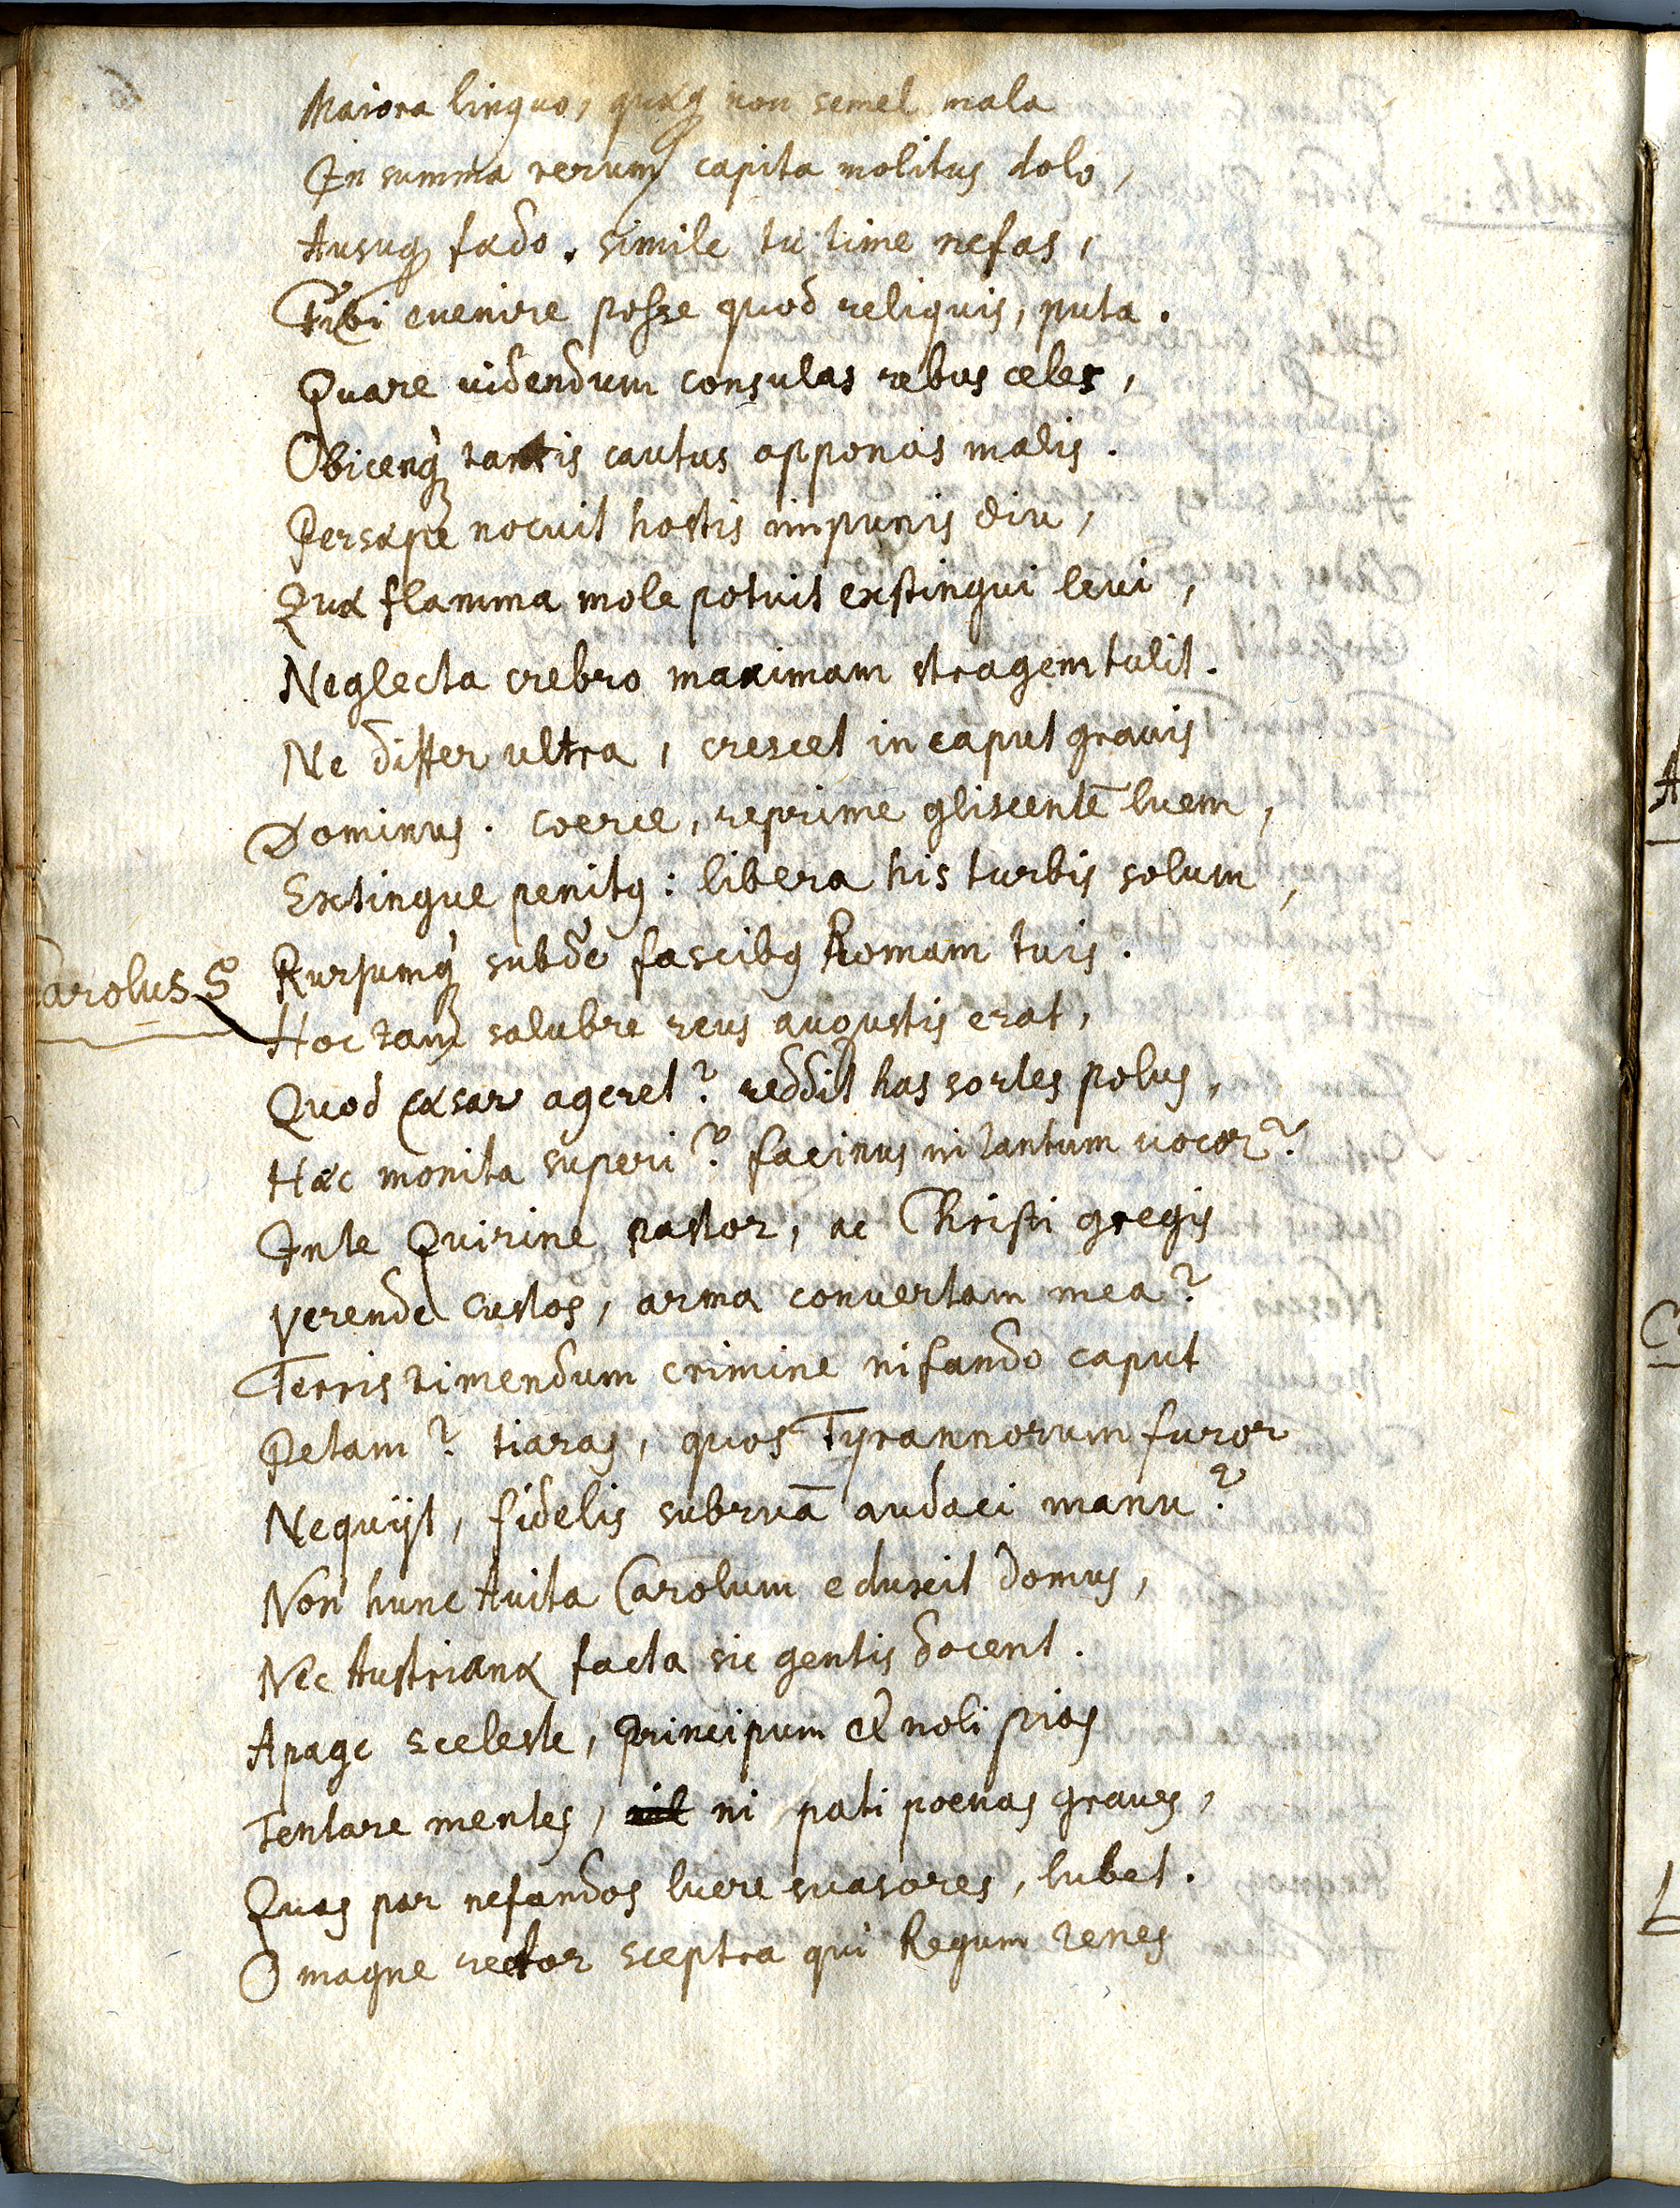 Maiora linquo, quæq; non semel mala
In summa rerum capita molitus dolo,
Ausuq; fædo. simile tu time nefas,
Tibi euenire posse quod reliquis, puta.
Quare uidendum consulas rebus celer,
Obicenq; tantis cautus apponas malis.
Persæpe nocuit hostis impunis diu,
Quæ flamma mole potuit exstingui leui,
Neglecta crebro maximam stragem tulit.
Ne differ ultra, crescet in caput grauis
Dominus. coerce, reprime gliscentẽ luem,
Extingue penitq: libera his turbis solum,
Rursumq; subde fascibq Romam tuis.
Carolus 5
Hoc tam salubre reus augustis erat,
Quod Cæsar ageret? reddit has sortes polus,
Hæc monita superi? facinus in tantum uocor?
In te Quirine pastor, ac Christi gregis
Verende custos, arma conuertam mea?
Terris timendum crimine nifando caput
Petam? tiaras, quos Tyrannorum furor
Nequijt, fidelis subruã audaci manu?
Non hunc Auita Carolum eduxit domus,
Nec Austrianæ facta sic gentis docent.
Apage sceleste, principum et noli pias
Tentare mentes, ni pati poenas graues,
Quas par nefandos luere suasores, lubet.
O magne rector sceptra qui Regum tenes